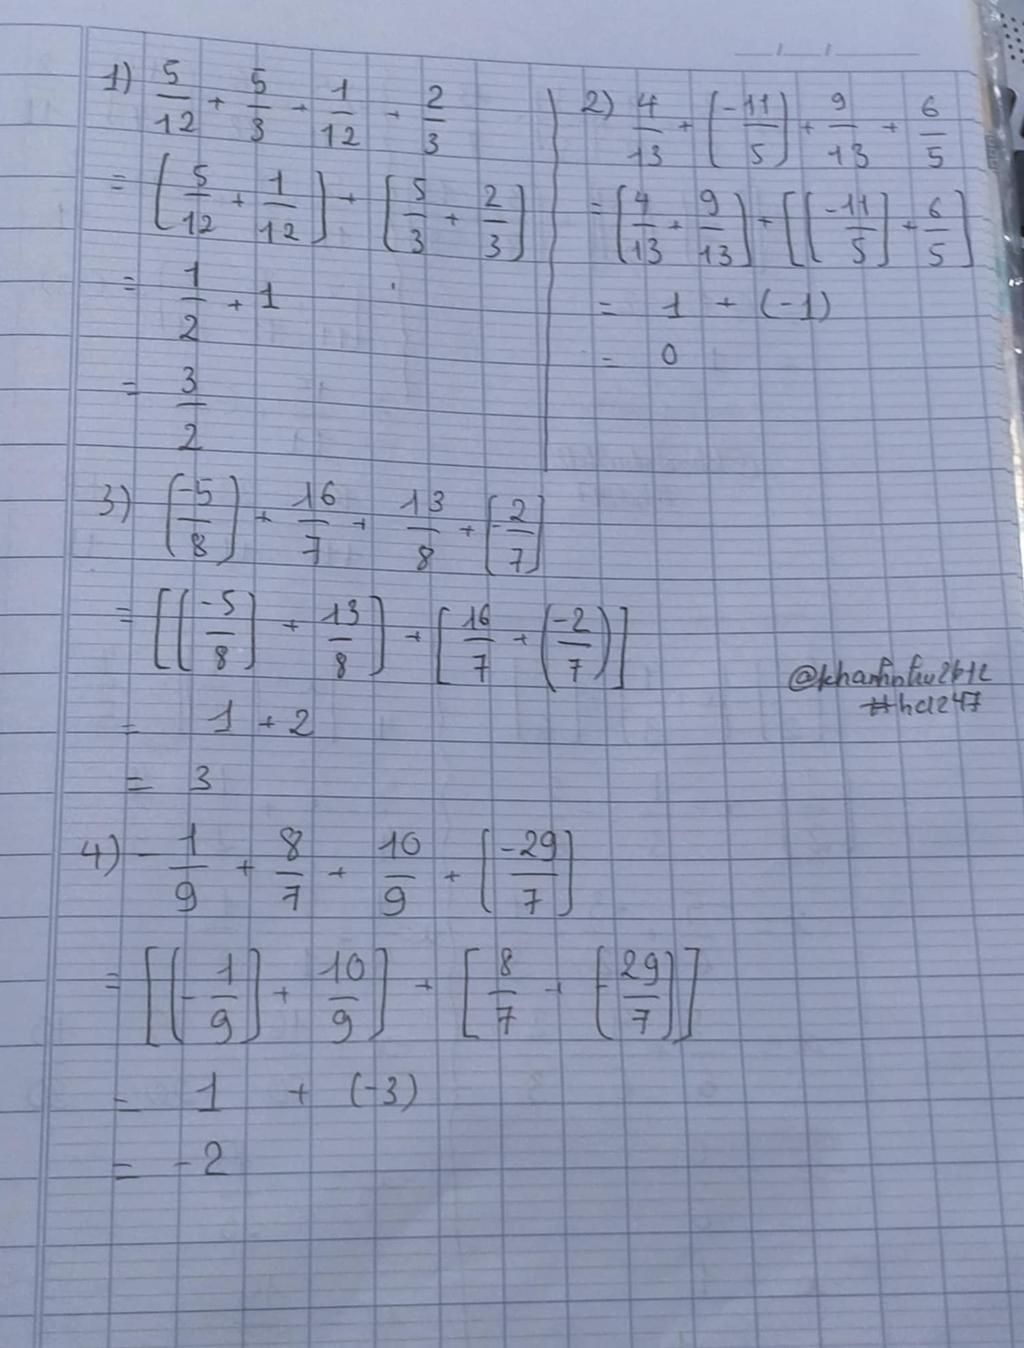 1) 5/12 + 5/3 + 1/12 + 2/3
= (5/12 + 1/12) + (5/3 + 2/3)
= 1/2 + 1
= 3/2
2) 4/13 + (-11/5) + 9/13 + 6/5
= (4/13 + 9/13) + [(-11/5) + 6/5]
= 1 + (-1)
= 0
3) (-5/8) + 16/7 + 13/8 + (-2/7)
= [(-5/8) + 13/8] + [16/7 + (-2/7)]
= 1 + 2
= 3
@khanhnhu2k12
#hd247
4) -1/9 + 8/7 + 10/9 + (-29/7)
= [(-1/9) + 10/9] + [8/7 + (-29/7)]
= 1 + (-3)
= -2